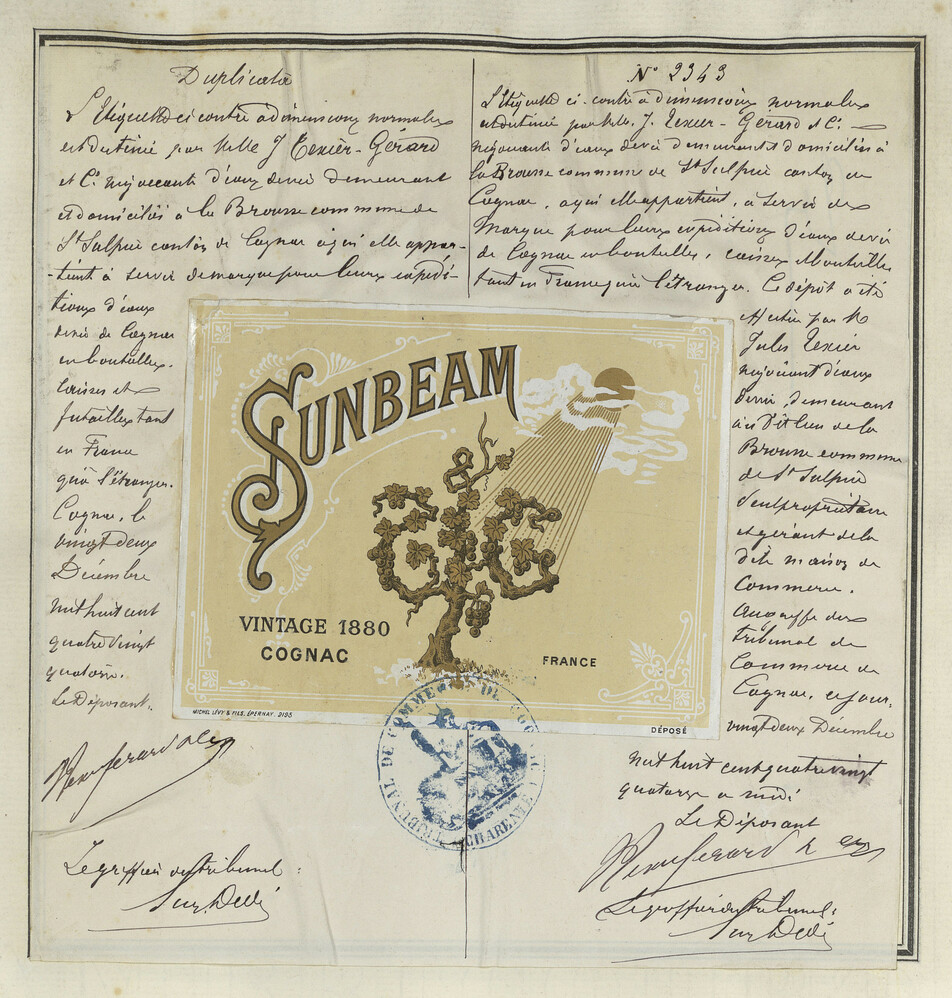 Duplicata
L'Etiquette ci contre à dimensions normales
est destinée par Mlle J Texier-Gérard
et Cie négociants d'eaux de vie demeurant
et domiciliés à la Brousse commune de
St Sulpice canton de Cognac à qui elle appar-
-tient à servir de marque pour leurs expédi-
tions d'eaux
de vie de Cognac
en bouteilles,
caisses et
futailles tant
en France
qu'à l'étranger.
Cognac, le
vingt deux
Décembre
mil huit cent
quatre vingt
quatorze.
Le Déposant.
Le greffier du tribunal:
N° 2343
L'Etiquette ci-contre à dimensions normales
est destinée par Mlle. J. Texier-Gérard et Cie
négociants d'eaux de vie demeurant et domiciliés à
la Brousse commune de St Sulpice canton de
Cognac, à qui elle appartient, à servir de
Marque pour leurs expéditions d'eaux de vie
de Cognac en bouteilles, caisses et bouteilles
tant en France qu'à l'étranger. Ce dépôt a été
effectué par M
Jules Texier
négociant d'eaux
de vie, demeurant
au dit lieu de la
Brousse commune
de St Sulpice
seul propriétaire
et gérant de la
dite maison de
Commerce,
au greffe du
tribunal de
Commerce de
Cognac, ce jour,
vingt deux Décembre
mil huit cent quatre vingt
quatorze à midi
Le Déposant
Le greffier du tribunal:
SUNBEAM
VINTAGE 1880
COGNAC
FRANCE
MICHEL LÉVY & FILS, ÉPERNAY. 3195
DÉPOSÉ
TRIBUNAL DE COMMERCE DE COGNAC
CHARENTE